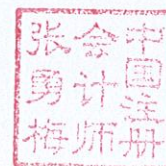 中國注册
会计师
张勇梅